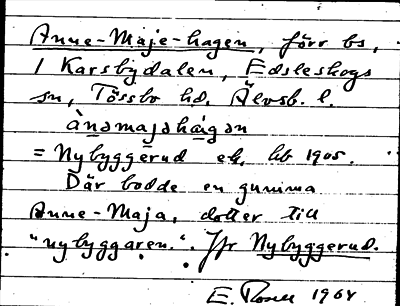 Anne-Maje-hagen, förr bs,
i Karsbydalen, Edsleskogs
sn, Tössbo hd. Älvsb. l.
ànəmajəhàigən
= Nybyggerud ek. hb 1905.
Där bodde en gumma
Anne-Maja, dotter till
"nybyggaren.". Jfr Nybyggerud.
E. 1964